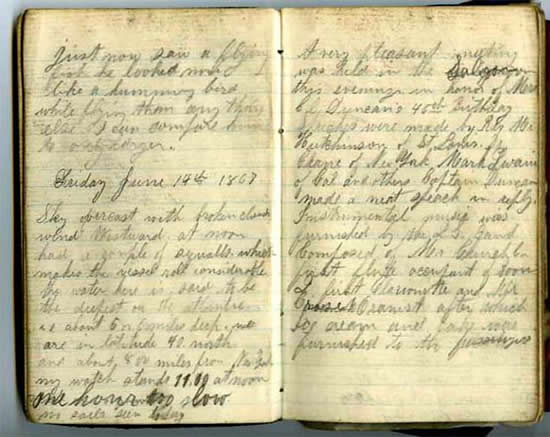 just now saw a flying
fish he looked more
like a humming bird
while flying than any thing
else I can compare him
to only larger.
Friday June 14th 1867
Sky overcast with broken clouds
wind Westward at noon
had a couple of squalls which
makes the vessel roll considerable
the water here is said to be
the deepest on the Atlantic
i.e. about 6 or miles deep, we
are in latitude 40 north
and about 800 miles from New York
my watch stands 11.00 at noon
one hour too slow
no sails seen today
A very pleasant meeting
was held in the Saloon
this evening in honor of Mrs
C. Duncan's 45th Birthday
were made by Rev Mr
Hutchinson of St Louis, Dr
of New York Mark Twain
of Cal and others Captain Duncan
made a neat speech in reply.
Instrumental music was
furnished by the Q.C. band
Composed of Mr Church
first flute occupant of room
first Clarionette and Mr
Pianist after which
Ice cream and cake was
furnished to the passengers